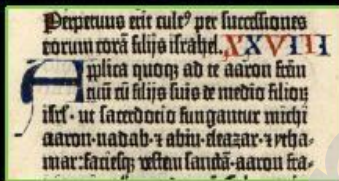 Perpetuus erit cult⁹ per successiones
eorum corā filijs israhel. XXVIII
Applica quoq; ad te aaron frēm
tuū cū filijs suis de medio filioꝝ
isrl'· ut sacerdotio fungantur michi
aaron· nadab· ⁊ abiu· eleazar· ⁊ ytha-
mar: faciesq; vestem sanctā· aaron fra-